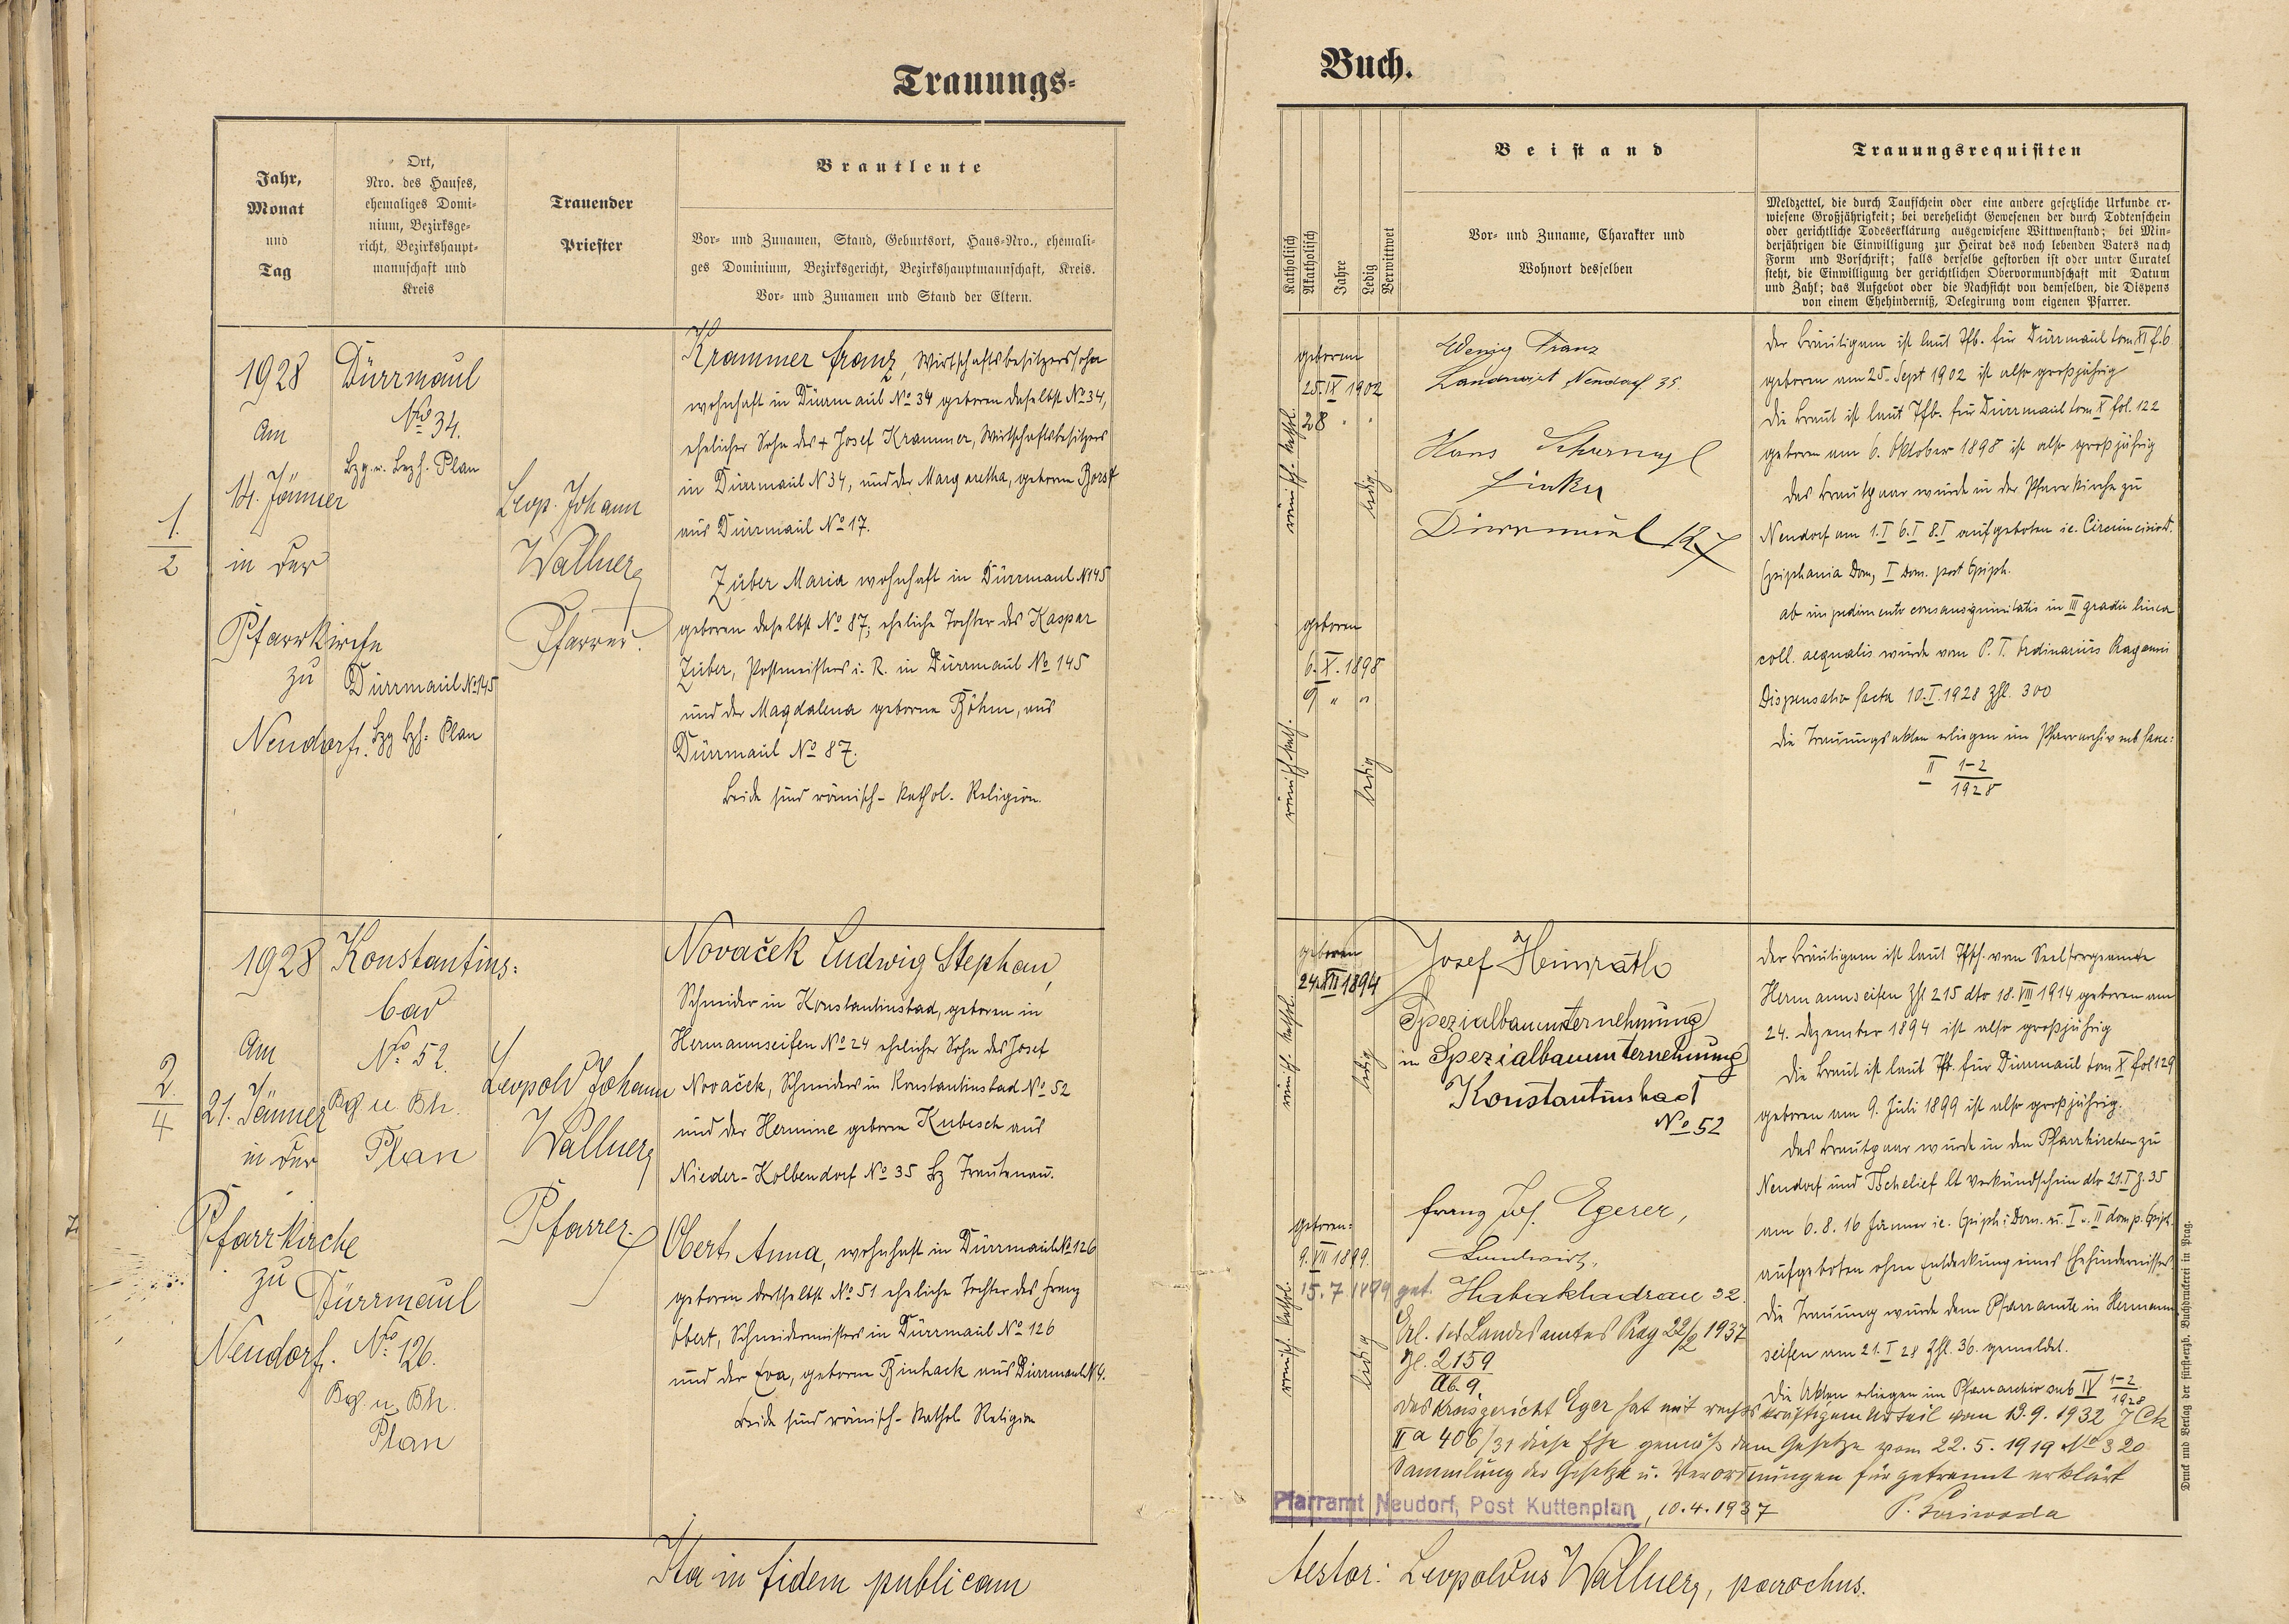 Trauungs-
Jahr,
Monat
und
Tag
Ort,
Nro. des Hauses,
ehemaliges Domi-
nium, Bezirksge-
richt, Bezirkshaupt-
mannschaft und
Kreis
Trauender
Priester
Brautleute
Vor- und Zunamen, Stand, Geburtsort, Haus-Nro., ehemali-
ges Dominium, Bezirksgericht, Bezirkshauptmannschaft, Kreis.
Vor- und Zunamen und Stand der Eltern.
1.
2
1928
Am
14. Jänner
in der
Pfarrkirche
zu
Neudorf.
Dürrmaul
No 34.
Bzg. u. Bezh. Plan
Dürrmaul No 145
Bzg Bzh. Plan
Leop. Johann
Wallner
Pfarrer.
Krammer Franz, Wirtschaftsbesitzerssohn
wohnhaft in Dürrmaul No 34 geboren daselbst No 34,
ehelicher Sohn des + Josef Krammer, Wirtschaftsbesitzers
in Dürrmaul N 34, und der Margaretha, geborene Borst
aus Dürrmaul No 17.
Zuber Maria wohnhaft in Dürrmaul N 145
geboren daselbst No 87, eheliche Tochter des Kaspar
Zuber, Postmeisters i. R. in Dürrmaul No 145
und der Magdalena geborne Böhm, aus
Dürrmaul No 87.
Beide sind römisch-kathol. Religion.
2.
4
1928
Am
21. Jänner
in der
Pfarrkirche
zu
Neudorf.
Konstantins-
bad
No 52.
Bg u. Bh.
Plan
Dürrmaul
No 126.
Bg. u. Bh.
Plan
Leopold Johann
Wallner
Pfarrer.
Novaček Ludwig Stephan,
Schneider in Konstantinsbad, geboren in
Hermannseifen No 24 ehelicher Sohn des Josef
Novaček, Schneiders in Konstantinsbad No 52
und der Hermine geboren Kubesch aus
Nieder-Kolbendorf No 35 Bz Trautenau.
Obert Anna, wohnhaft in Dürrmaul No 126
geboren dortselbst No 51 eheliche Tochter des Franz
Obert, Schneidermeisters in Dürrmaul No 126
und der Eva, geborne Binhack aus Dürrmaul N 4.
Beide sind römisch-kathol Religion
Ita in fidem publicam
Buch.
Katholisch
Akatholisch
Jahre
Ledig
Verwittwet
Beistand
Vor- und Zuname, Charakter und
Wohnort desselben
Trauungsrequisiten
Meldzettel, die durch Taufschein oder eine andere gesetzliche Urkunde er-
wiesene Großjährigkeit; bei verehelicht Gewesenen der durch Todtenschein
oder gerichtliche Todeserklärung ausgewiesene Wittwenstand; bei Min-
derjährigen die Einwilligung zur Heirat des noch lebenden Vaters nach
Form und Vorschrift; falls derselbe gestorben ist oder unter Curatel
steht, die Einwilligung der gerichtlichen Obervormundschaft mit Datum
und Zahl; das Aufgebot oder die Nachsicht von demselben, die Dispens
von einem Ehehinderniß, Delegirung vom eigenen Pfarrer.
geboren
25. IX 1902
28 " "
römisch-kathol.
ledig
geboren
6. X. 1898
9 " "
römisch kath.
ledig
Wenig Franz
Landwirt Neudorf 35.
Hans
Dürrmaul 127
Der Bräutigam ist laut Tfb. für Dürrmaul tom XI f. 6
geboren am 25. Sept 1902 ist also großjährig
Die Braut ist laut Tfb. für Dürrmaul tom X fol. 122
geboren am 6. Oktober 1898 ist also großjährig
Das Brautpaar wurde in der Pfarrkirche zu
Neudorf am 1. I 6. I 8. I aufgeboten ie. Circumcisio D.
Epiphania Dom, I Dom. post Epiph.
ab impedimento consanguinitatis in III gradu linea
coll. aequalis wurde vom P. T. Ordinarius
Dispensatio facta 10. I. 1928 Zhl. 300
Die Trauungsakten erliegen im Pfarrarchiv sub
II 1-2
1928
geboren
24. XII 1894
römisch-kathol.
ledig
geboren:
9. VII 1899.
15. 7 1899 get.
römisch. kathol.
ledig
Josef Heimrath
Spezialbauunternehmung
in Spezialbauunternehmung
Konstantinsbad
No 52
Franz Jos. Egerer,
Landwirt,
Habakladrau 32.
Erl. des Landesamtes Prag 22/2 1937
Zl. 2159
Ab. 9.
Der Bräutigam ist laut Tfsch. vom Seelsorgeamte
Hermannseifen Zhl 215 dto 18. VIII 1914 geboren am
24. Dezember 1894 ist also großjährig
Die Braut ist laut Tfb. für Dürrmaul tom X fol 129
geboren am 9. Juli 1899 ist also großjährig.
Das Brautpaar wurde in den Pfarrkirchen zu
Neudorf und Tschelief lt Verkündschein dto 21. I Z. 35
am 6. 8. 16 Jänner ie. Epiph; Dom. u. I u. II dom p. Epiph.
aufgeboten ohne Entdeckung eines Ehehindernisses.
Die Trauung wurde dem Pfarramte in Hermann-
seifen am 21. I 28 Zhl. 36. gemeldet.
Die Akten erliegen im Pfarrarchiv sub IV 1-2
1928
Das Kreisgericht Eger hat mit rechtskräftigem Urteil vom 19. 9. 1932 7 Ck
II a 406/31 diese Ehe gemäß dem Gesetze vom 22. 5. 1919 No 320
Sammlung der Gesetze u. Verordnungen für getrennt erklärt
Pfarramt Neudorf, Post Kuttenplan, 10. 4. 1937
Druck und Verlag der fürsterzb. Buchdruckerei in Prag.
testor: Leopoldus Wallner, parochus.